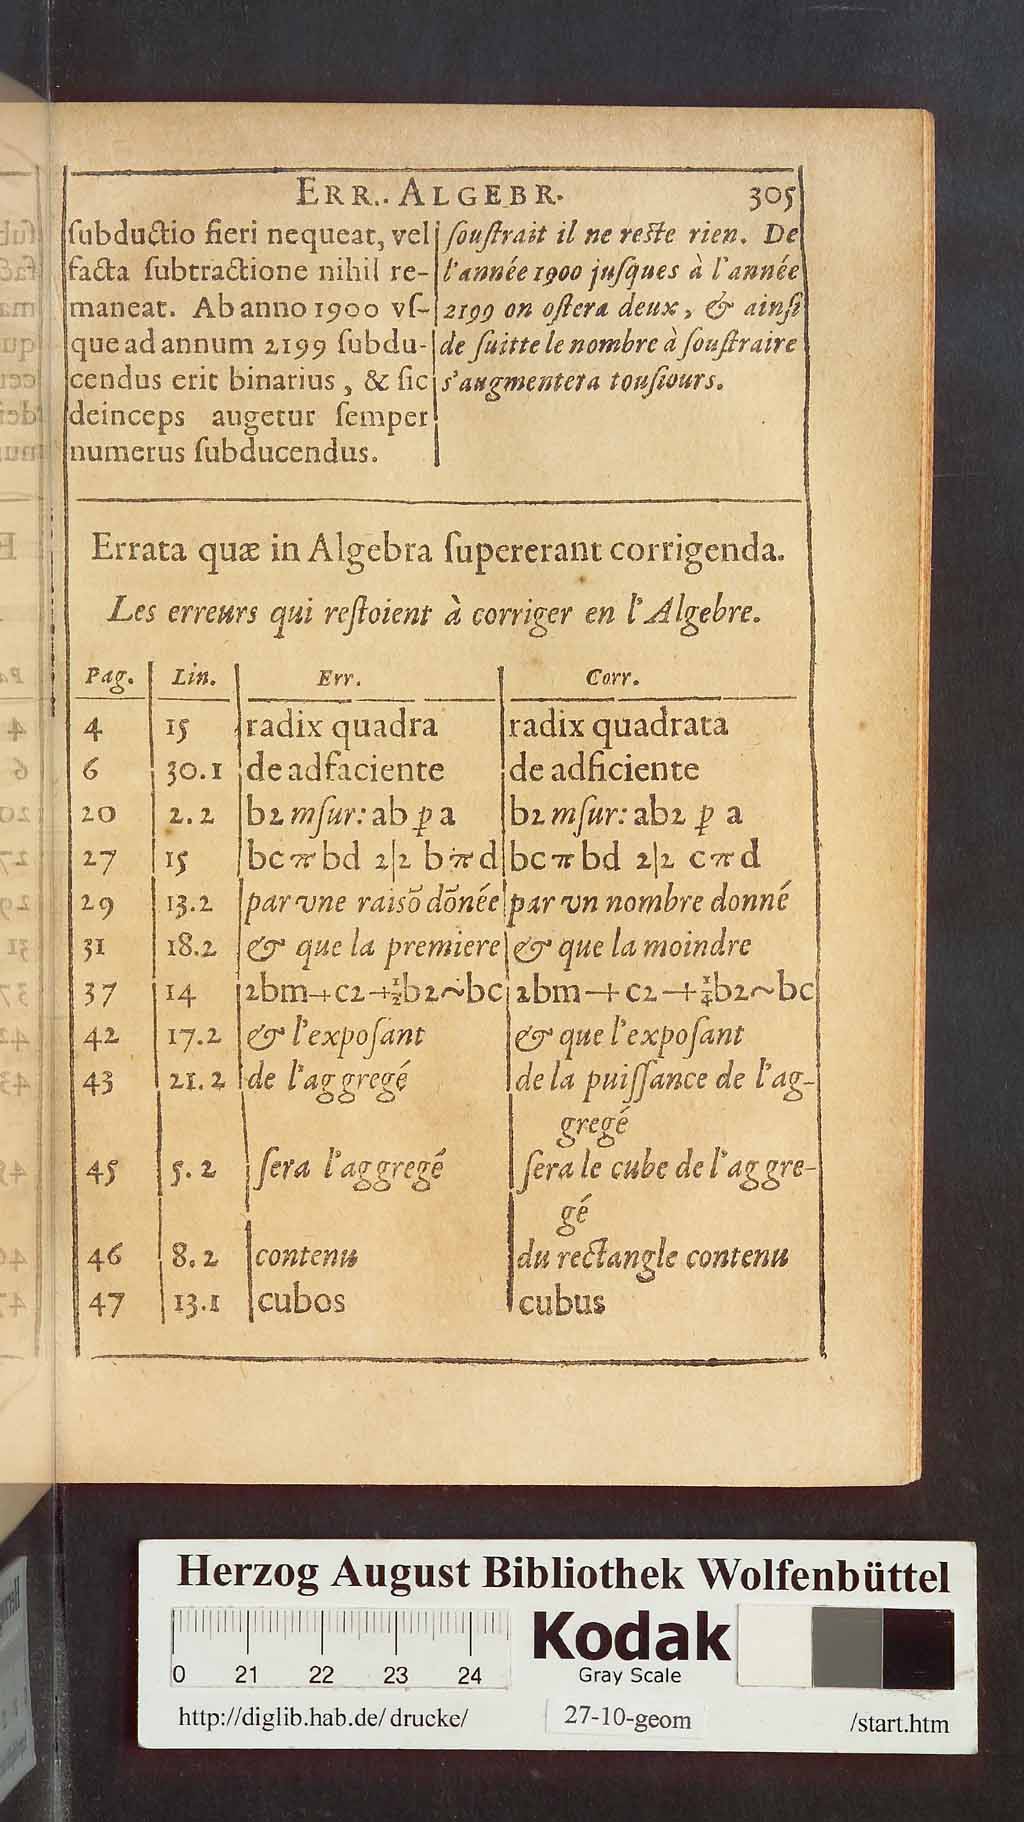 ERR. ALGEBR. 305
ſubductio fieri nequeat, vel
facta ſubtractione nihil re-
maneat. Ab anno 1900 vſ-
que ad annum 2199 ſubdu-
cendus erit binarius, & ſic
deinceps augetur ſemper
numerus ſubducendus.
ſouſtrait il ne reſte rien. De
l'année 1900 juſques à l'année
2199 on oſtera deux, & ainſi
de ſuitte le nombre à ſouſtraire
s'augmentera touſiours.
Errata quæ in Algebra ſupererant corrigenda.
Les erreurs qui reſtoient à corriger en l'Algebre.
Pag. Lin. Err. Corr.
4 15 radix quadra radix quadrata
6 30.1 de adfaciente de adficiente
20 2.2 b2 mſur: ab p a b2 mſur: ab2 p a
27 15 bc π bd 2|2 b π d bc π bd 2|2 c π d
29 13.2 par vne raisõ dõnée par vn nombre donné
31 18.2 & que la premiere & que la moindre
37 14 2bm+c2+½b2~bc 2bm+c2+¼b2~bc
42 17.2 & l'expoſant & que l'expoſant
43 21.2 de l'aggregé de la puiſſance de l'ag-
gregé
45 5.2 ſera l'aggregé ſera le cube de l'aggre-
gé
46 8.2 contenu du rectangle contenu
47 13.1 cubos cubus
Herzog August Bibliothek Wolfenbüttel
Kodak
Gray Scale
0 21 22 23 24
http://diglib.hab.de/drucke/ 27-10-geom /start.htm